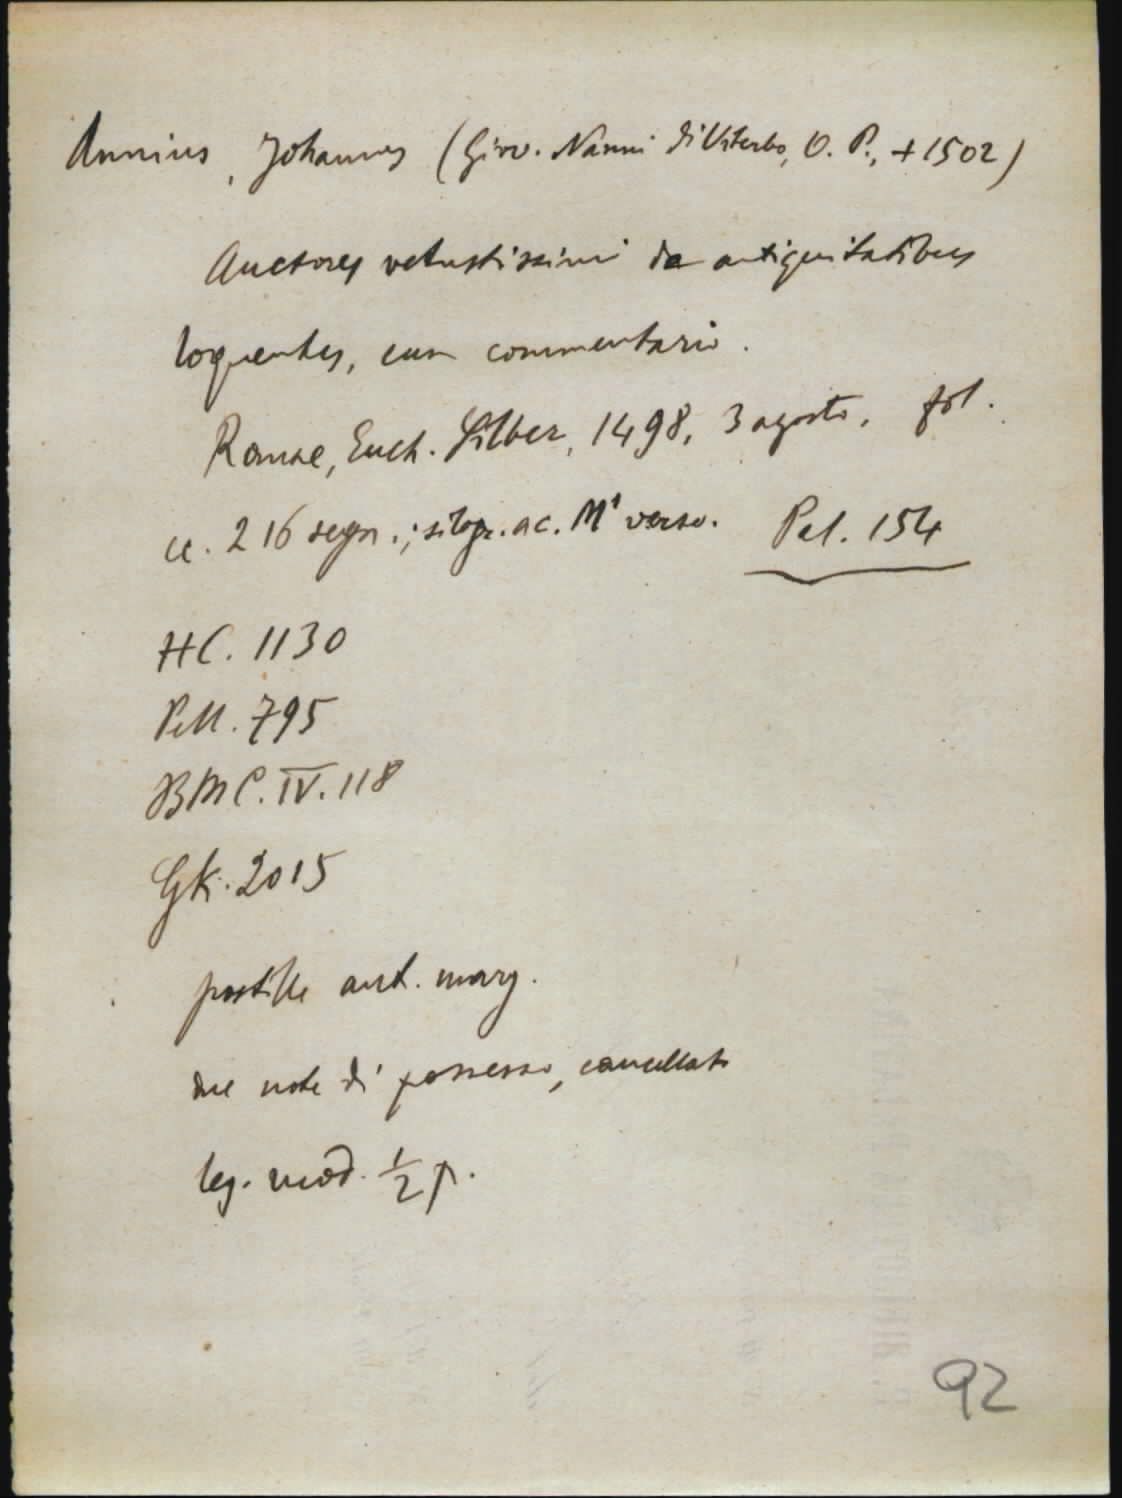 Annius, Johannes (Giov. Nanni di Viterbo, O. P., +1502)
Auctores vetustissimi de antiquitatibus
loquentes, cum commentario.
Romae, Euch. Silber, 1498, 3 agosto, fol.
cc. 216 segn.; silogr. a c. M1 verso. Pal. 154
HC. 1130
Pell. 795
BMC. IV. 118
GK. 2015
postille ant. marg.
due note di possesso, cancellate
leg. mod. 1/2 p.
92